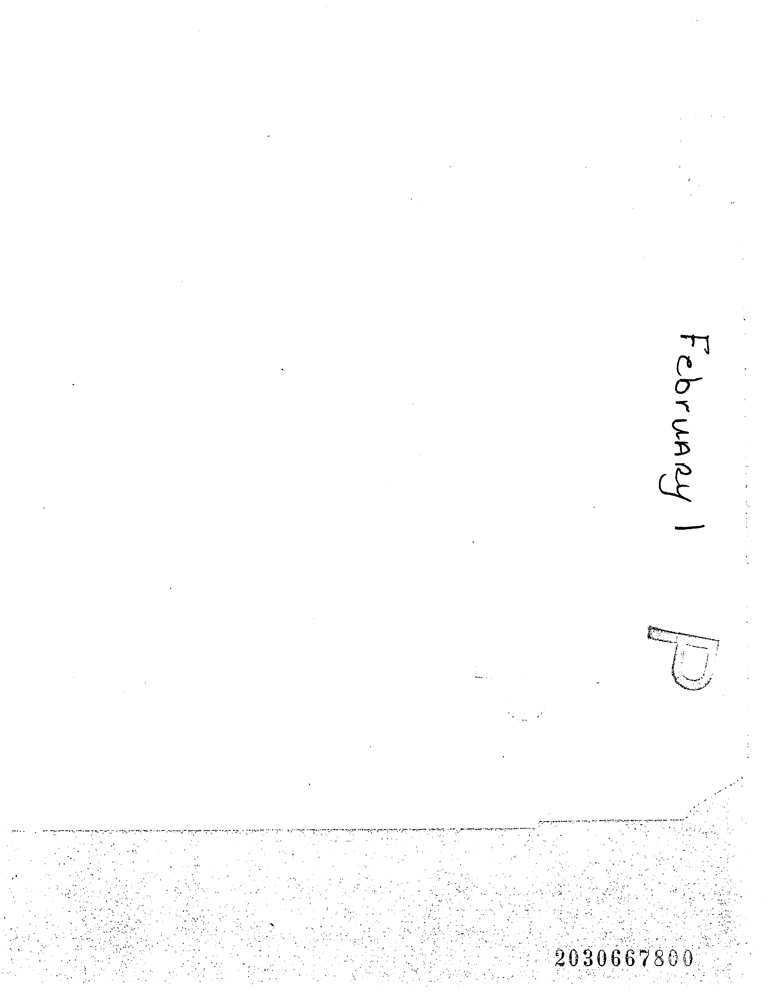 February 1
P
2030667800